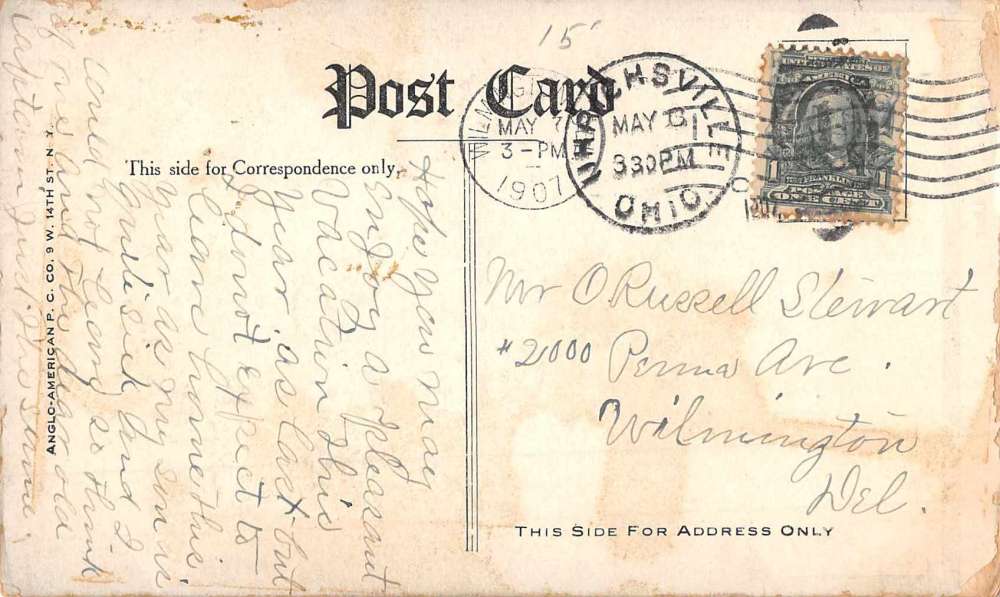 15
Post Card
This side for Correspondence only.
WILMINGTON
MAY 7
3-PM
1907
UHRICHSVILLE
MAY 6
330PM
OHIO
UNITED STATES OF
AMERICA
1 1
POSTAGE
ONE CENT
Hope you may
Enjoy a pleasant
Vacation this
year as last but
I do not expect to
leave home this
year as my son is
quite sick and I
could not leave so think
of me and the dear old
captain just the same.
Mr O. Russell Stewart
#2000 Penna Ave.
Wilmington
Del.
THIS SIDE FOR ADDRESS ONLY
ANGLO-AMERICAN P. C. CO. 9 W. 14TH ST. N. Y.